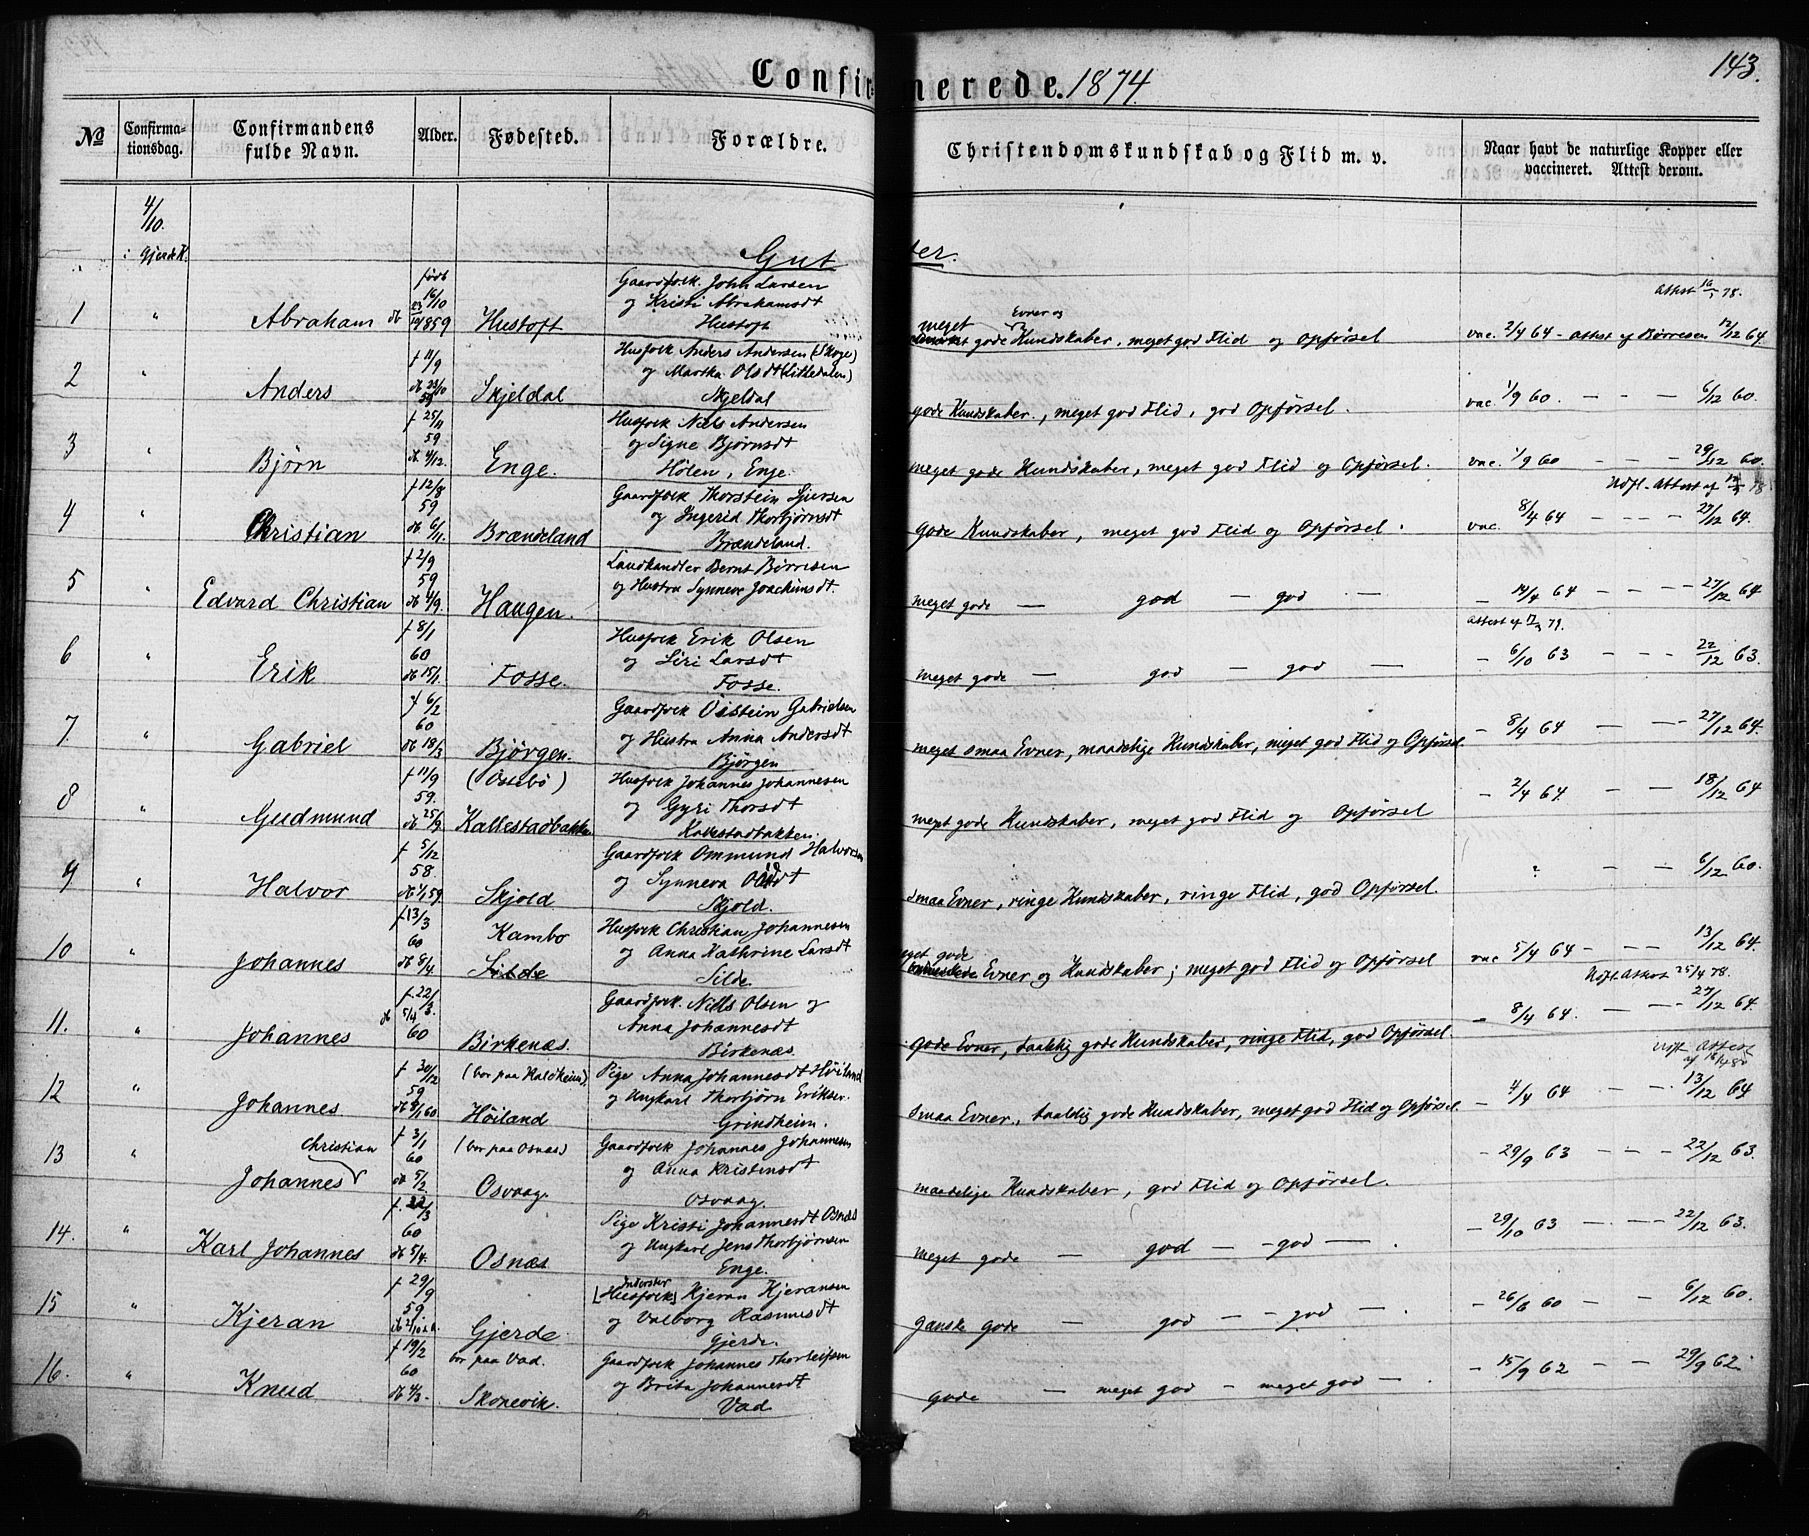 143.
Confirmerede. 1874.
№ Confirma-tionsdag. Confirmandens fulde Navn. Alder. Fødested. Forældre. Christendomskundskab og Flid m. v. Naar havt de naturlige Kopper eller vaccineret. Attest derom.
4/10.
Gjerde K.
Gutter.
født
Gaardfolk John Larsen
16/10
og Kristi Abrahamsdt
Attest 16/5 78.
1 " Abraham db 1859 Hustoft Hustoft meget gode Evner og Kundskaber, meget god Flid og Opførsel vac. 2/4 64 - attest af Børresen 12/12 64.
f 11/9 Husfolk Anders Andersen (Skoge)
og Martha Olsdt (Litledalen)
2 " Anders db 23/10 59 Skjeldal Skjeldal gode Kundskaber, meget god Flid, god Opførsel. vac. 1/9 60. — — 6/12 60.
f 25/11 59. Husfolk Niels Andersen
og Signe Bjørnsdt
3 " Bjørn db. 4/12. Enge. Hølen, Enge. meget gode Kundskaber, meget god Flid og Opførsel. vac. 1/9 60 — — — 29/12 60.
f 12/8 59 Gaardfolk Thorstein Sjursen
og Ingerid Thorbjørnsdt
Udfl. Attest af 78
4 " Christian db 6/11. Brændeland Brændeland. gode Kundskaber, meget god Flid og Opførsel. vac. 8/4 64 — — — 27/12 64.
f 2/9 59 Landhandler Bernt Børresen
og Hustru Synneve Joachimsdt.
5 " Edvard Christian db 4/9. Haugen. meget gode — god — god — — 14/4 64 — — — 27/12 64
f 8/1 60 Husfolk Erik Olsen
og Siri Larsdt
Attest af 79.
6 " Erik db 15/1. Fosse. Fosse. meget gode — god — god — — 6/10 63 — — — 22/12 63.
f 6/2 60 Gaardfolk Østein Gabrielsen
og Hustru Anna Andersdt
7 " Gabriel db 18/3 Bjørgen. Bjørgen meget smaa Evner, maadelige Kundskaber, meget god Flid og Opførsel — 8/4 64 — — — 27/12 64.
f 11/9 59. (Østebø) Husfolk Johannes Johannesen
og Gyri Thorsdt
8 " Gudmund db 25/9. Kallestadbakken Kallestadbakken. meget gode Kundskaber, meget god Flid og Opførsel — 2/4 64. — — 18/12 64
f 5/12 58. Gaardfolk Ommund Halvorsen
og Synneva Olsdt
9 " Halvor db 1/1 59. Skjold Skjold. smaa Evner, ringe Kundskaber, ringe Flid, god Opførsel ? — — 6/12 60.
f 13/3 60 Kambo Husfolk Christian Johannesen
og Anna Kathrine Larsdt
10 " Johannes db 8/4 Silde Silde. meget gode Evner og Kundskaber; meget god Flid og Opførsel vac 5/4 64 — — — 13/12 64.
Udfl. Attest 25/4 78.
f 22/3. db 5/4 Gaardfolk. Niels Olsen og
Anna Johannesdt
11. " Johannes 60 Birkenæs. Birkenæs. gode Evner, taalelig gode Kundskaber, ringe Flid, god Opførsel. — 8/4 64. — — 27/12 64.
Udfl. Attest
f 30/12 59 (bor paa Haldheim) Pige Anna Johannesdt Høiland
og Ungkarl Thorbjørn Eriksen.
12 " Johannes db 8/1 60 Høiland Grindheim. smaa Evner, taalelig gode Kundskaber, meget god Flid og Opførsel. — 4/4 64 — — 13/12 64
f 3/1 60 (bor paa Osnæs) Gaardfolk Johannes Johannesen
og Anna Kristensdt
13 " Johannes Christian db 5/2 Osvaag. Osvaag. maadelige Kundskaber, god Flid og Opførsel. — 29/9 63 — — — 22/12 63.
f. 22/3 60 Pige Kristi Johannesdt Osnæs
og Ungkarl Jens Thorbjørnsen
14. " Karl Johannes db 5/4. Osnæs Enge. meget gode — god — god — . — 29/10 63 — — — 22/12 63.
f 29/9 59 Inderster [Husfolk] Kjeran Kjeransen
og Valborg Rasmusdt
15 " Kjeran db 2/10 Gjerde Gjerde. ganske gode — god — god — . — 26/6 60 — — 6/12 60.
f 19/2 60 bor paa Vad. Gaardfolk Johannes Thorleifsen
og Brita Johannesdt
16. " Knud db 4/3. Skonevik. Vad gode — meget god — meget god — . — 15/9 62 — — 29/9 62.